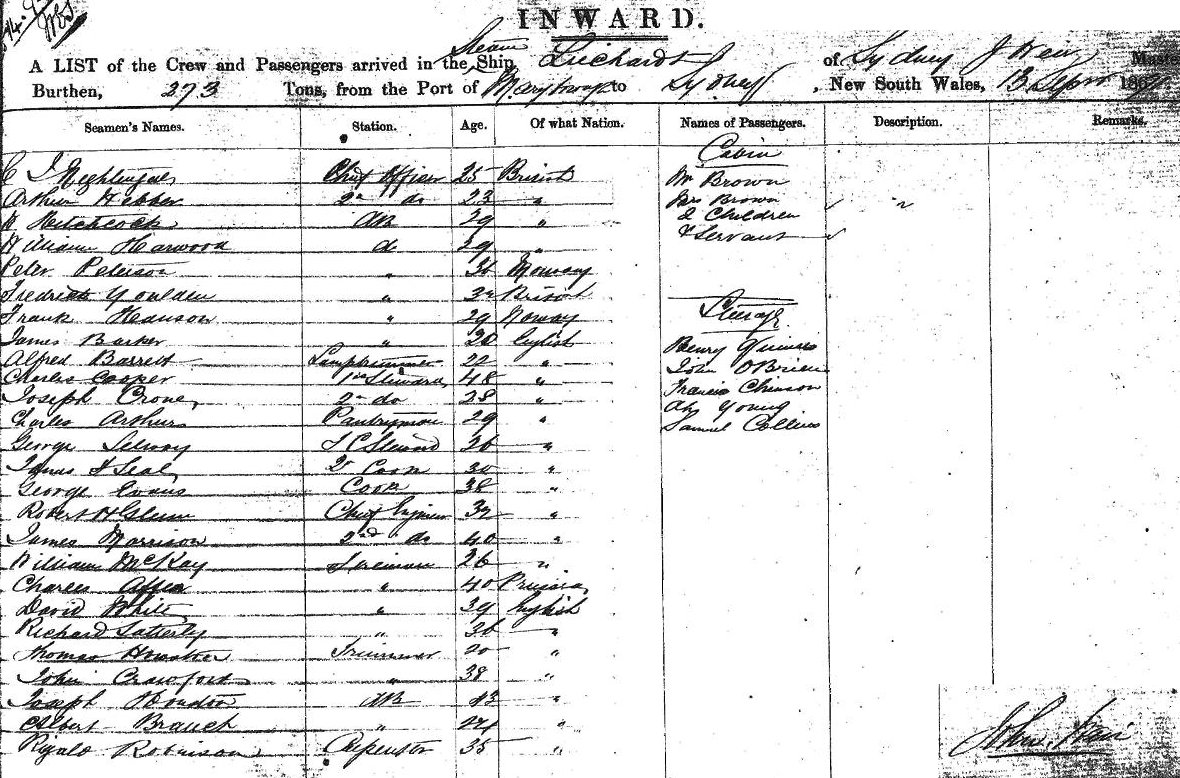 INWARD.
A LIST of the Crew and Passengers arrived in the Steam Ship Leichardt of Sydney J Hair Master
Burthen, 273 Tons, from the Port of to Sydney, New South Wales, 13 Sept 186
Seamen's Names. Station. Age. Of what Nation. Names of Passengers. Description. Remarks.
Cabin
C J Nightingale Chief Officer 25 British Mr Brown
Arthur Hebber 2nd do 23 " Mrs Brown
Hitchcock AB 29 " 2 Children "
William Harwood do 29 " & Servant
Peter Peterson " 36 Norway
Fredrick Youlden " British
Frank Hanson " 29 Norway Steerage
James Barker " 20 English Henry
Alfred Barrett Lamptrimmer 22 " John O'Brien
Charles Cooper 1st Steward 48 " Francis
Joseph Crone 2nd do 28 " Ah Young
Charles Arthur Pantryman 29 " Samuel Collins
George Selway Steward 26 "
James Seal 2nd Cook 30 "
George Evans Cook 38 "
Robert H Glenn Chief Engineer 32 "
James Morrison 2nd do 40 "
William McKay Fireman 26 "
Charles " 40 Prussia
David White " 39 English
Richard Satterly " 36 "
Thomas Trimmer 20 "
John Crawford " 38 "
Joseph AB 43 "
Albert Branch " 24 "
Robinson Carpenter 35 "
John Hair